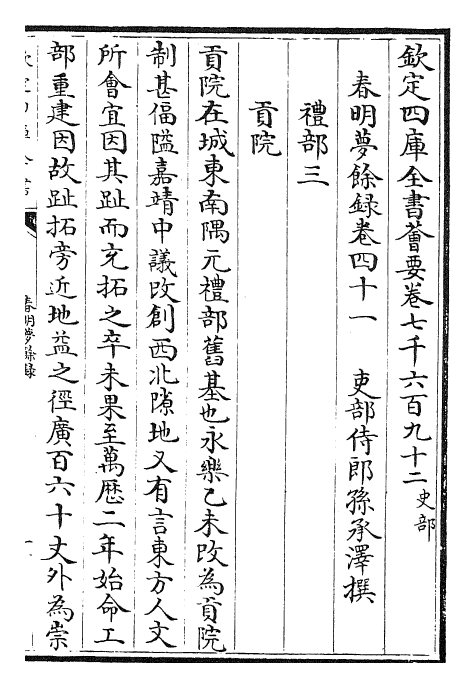 欽定四庫全書薈要卷七千六百九十二 史部
春明夢餘録卷四十一　吏部侍郎孫承澤撰
禮部三
貢院
貢院在城東南隅元禮部舊基也永樂乙未改為貢院
制甚偪隘嘉靖中議改創西北隙地又有言東方人文
所會宜因其趾而充拓之卒未果至萬歷二年始命工
部重建因故趾拓旁近地益之徑廣百六十丈外為崇
欽定四庫全書
春明夢餘録
一